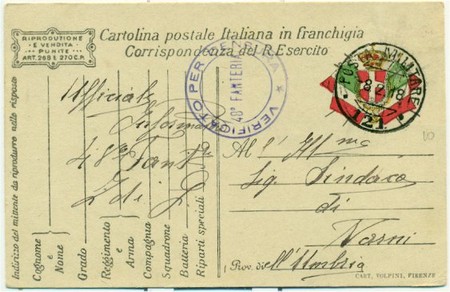 RIPRODUZIONE
E VENDITA
PUNITE
ART. 265 E 270 C.P.
Cartolina postale Italiana in franchigia
Corrispondenza del R. Esercito
VERIFICATO PER
48° FANTERIA
POSTA MILITARE
8.2.18
121
Indirizzo del mittente da riprodurre nelle risposte
Cognome
e
Nome
Grado
Reggimento
e
Arma
Compagnia
Squadrone
Batteria
Riparti speciali
Ufficiale
48°
Z di G
All'Ill.mo
Sig. Sindaco
di
Narni
Prov. di ell'Umbria
CART. VOLPINI, FIRENZE